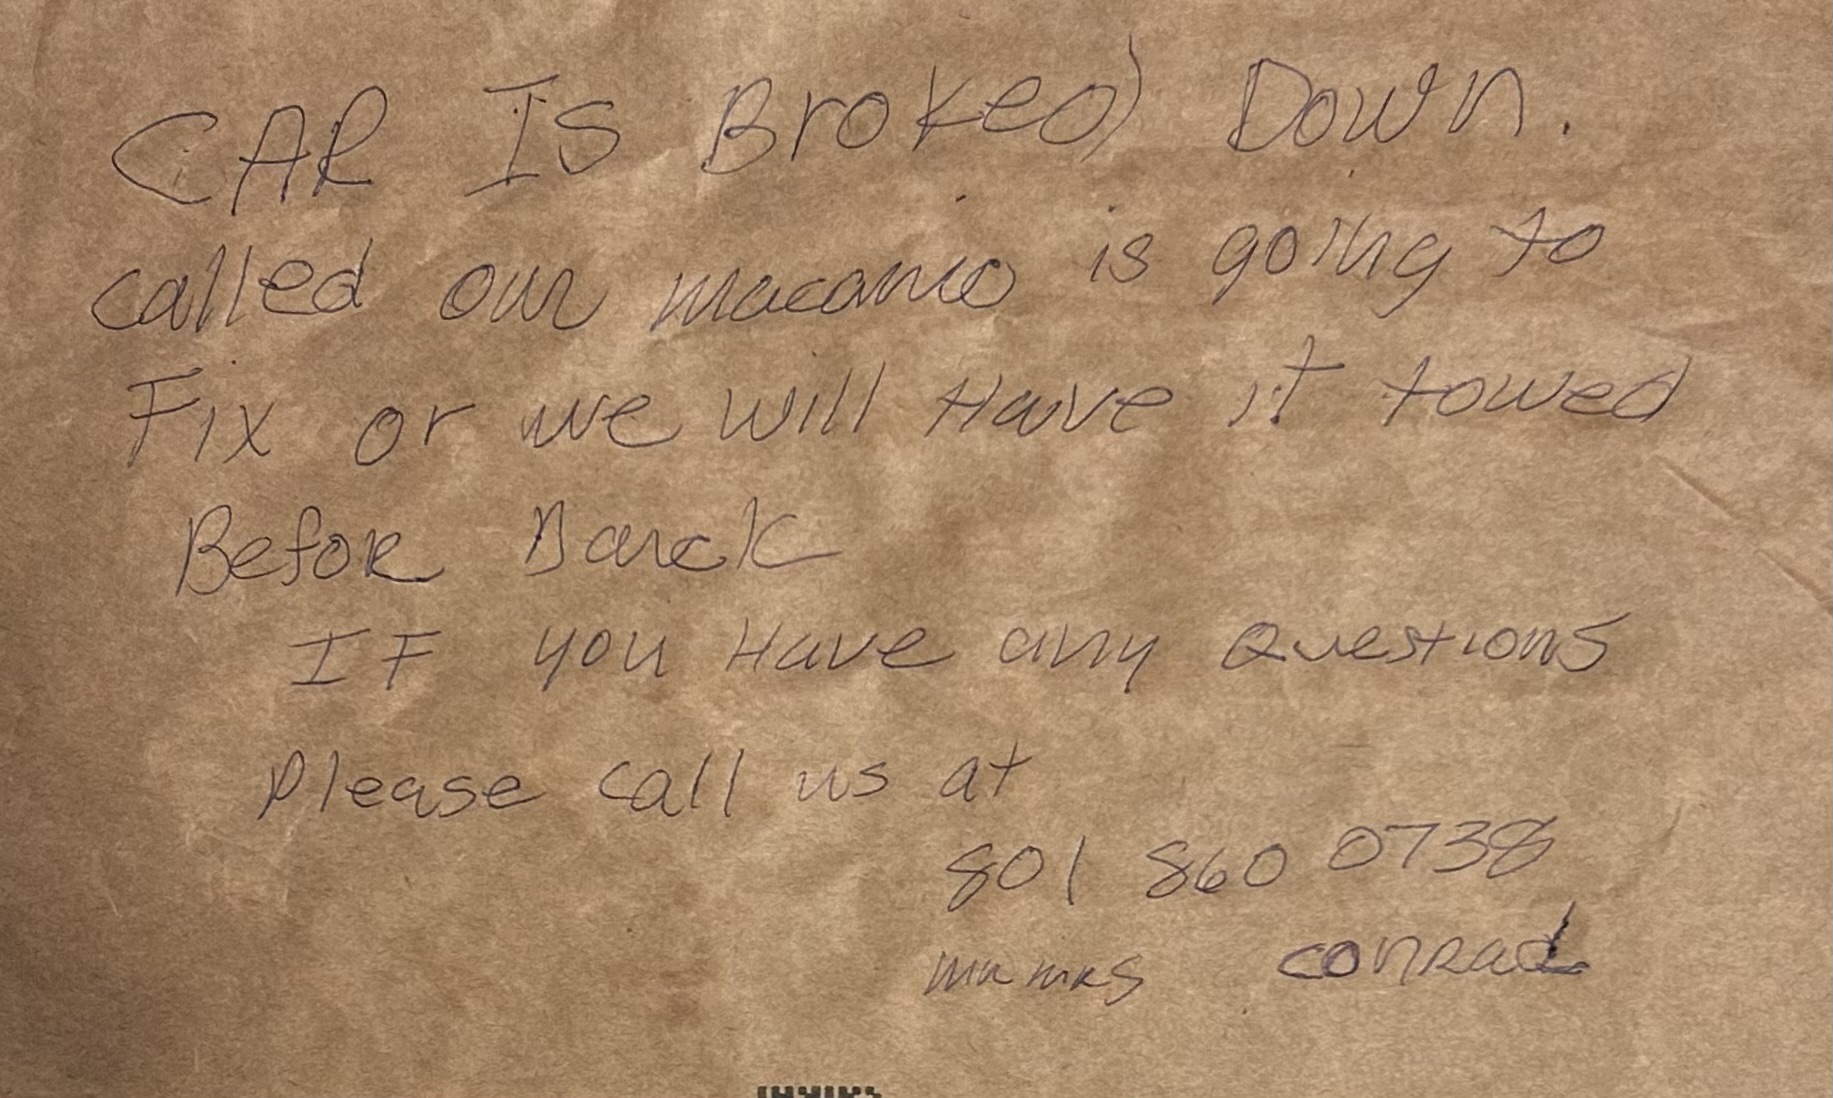 CAR IS Broked Down.
called our macanic is going to
Fix or we will Have it towed
Before Darck
IF you Have any Questions
Please call us at
801 860 0738
mr mrs conrad